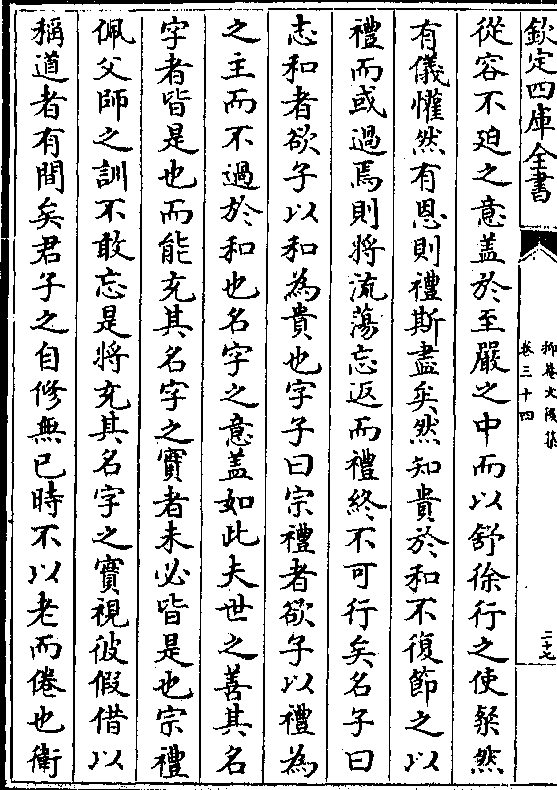 欽定四庫全書
抑菴文後集
卷三十四
二七
從容不廹之意蓋於至嚴之中而以舒徐行之使粲然
有儀懽然有恩則禮斯盡矣然知貴於和不復節之以
禮而或過焉則將流蕩忘返而禮終不可行矣名子曰
志和者欲子以和為貴也字子曰宗禮者欲子以禮為
之主而不過於和也名字之意蓋如此夫世之善其名
字者皆是也而能充其名字之實者未必皆是也宗禮
佩父師之訓不敢忘是將充其名字之實視彼假借以
稱道者有間矣君子之自修無已時不以老而倦也衛